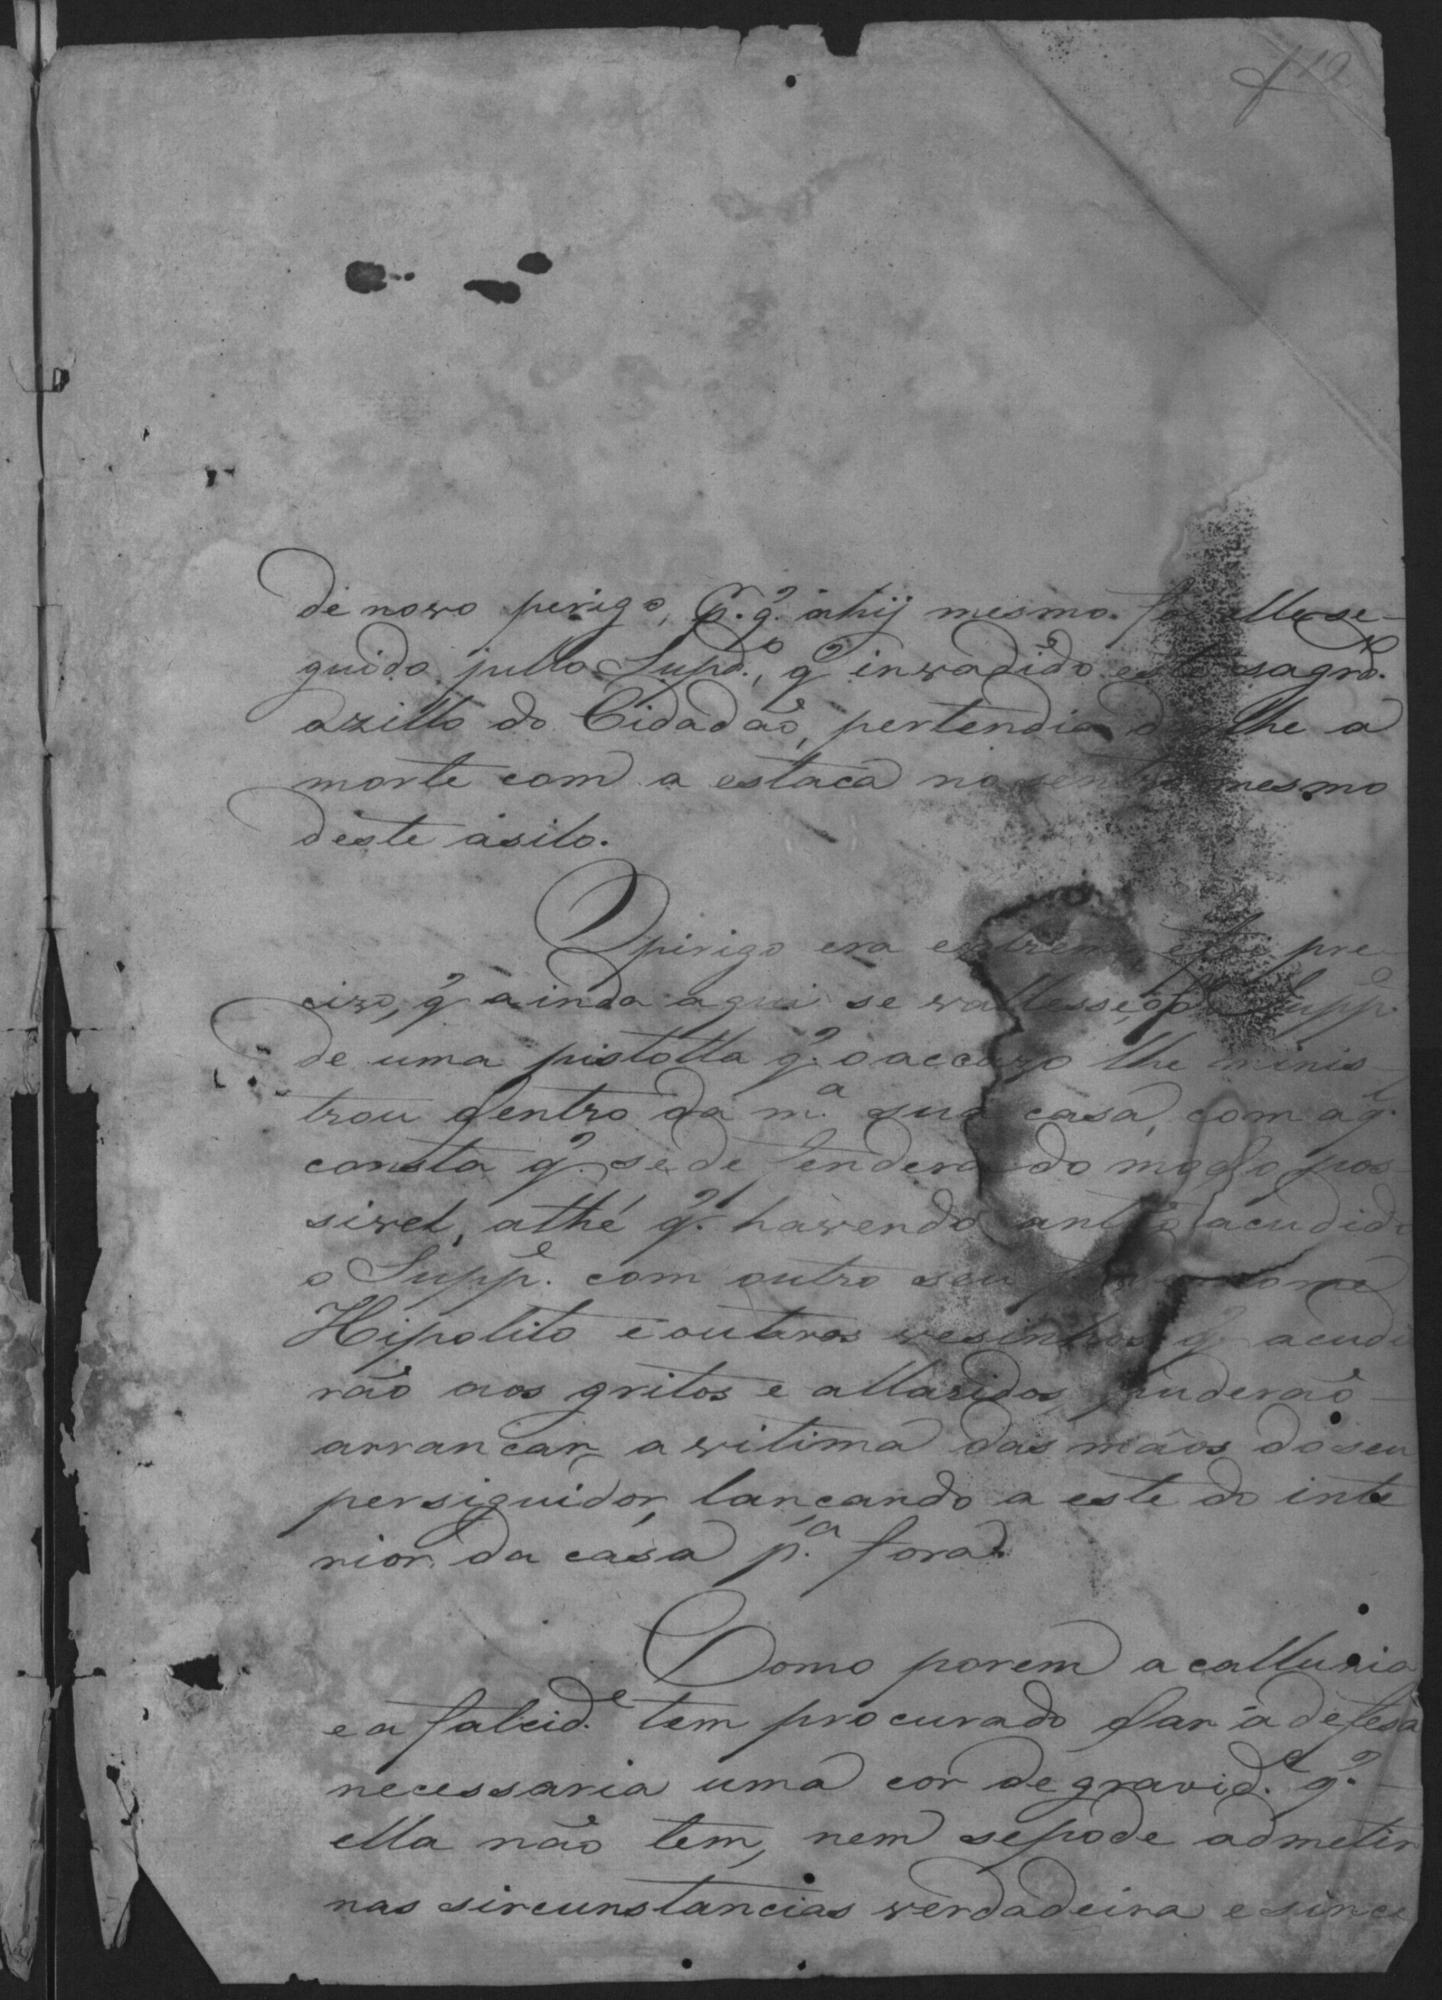 f 12
de novo perigo, p.r q.' ahij mesmo. foi elle se-
guido pello Supd.º, q' invadido este sagrd.º
azillo do Cidadão, pertendia dar lhe a
morte com a estaca no sentro mesmo
deste ásilo.
O pirigo era extremo e foi pre
cizo, q' ainda aqui se vallesse o Supp.e
de uma pistolla q.' o accazo lhe minis-
trou dentro da m.a sua casa, com a q.l
consta q.' se defendera do modo pos-
sivel, athé q.' havendo antão acudido
o Supp.e com outro seu nome
Hipolito e outros vesinhos q' acudi
rão aos gritos e allaridos, puderaõ-
arrancar a vitima das mãos do seu
persiguidor, lançando a este do inte
rior da casa p.a fora.
Como porem a callunia
e a falcid.e tem procurado dar á defesa
necessaria uma cor de gravid.e q.'
ella não tem, nem se pode admetir
nas sircunstancias verdadeira e since